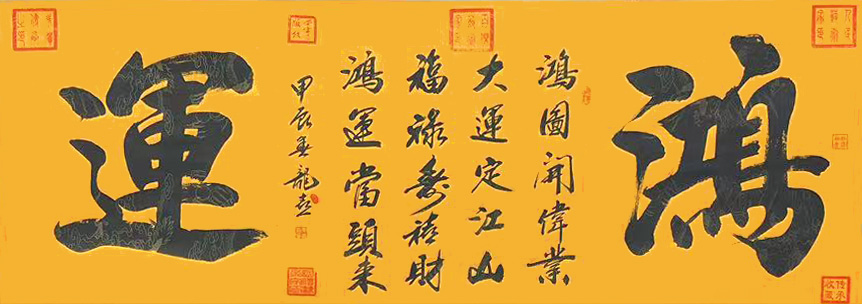 鴻
鴻圖開偉業
大運定江山
福祿壽禧財
鴻運當頭來
甲辰春龍
運